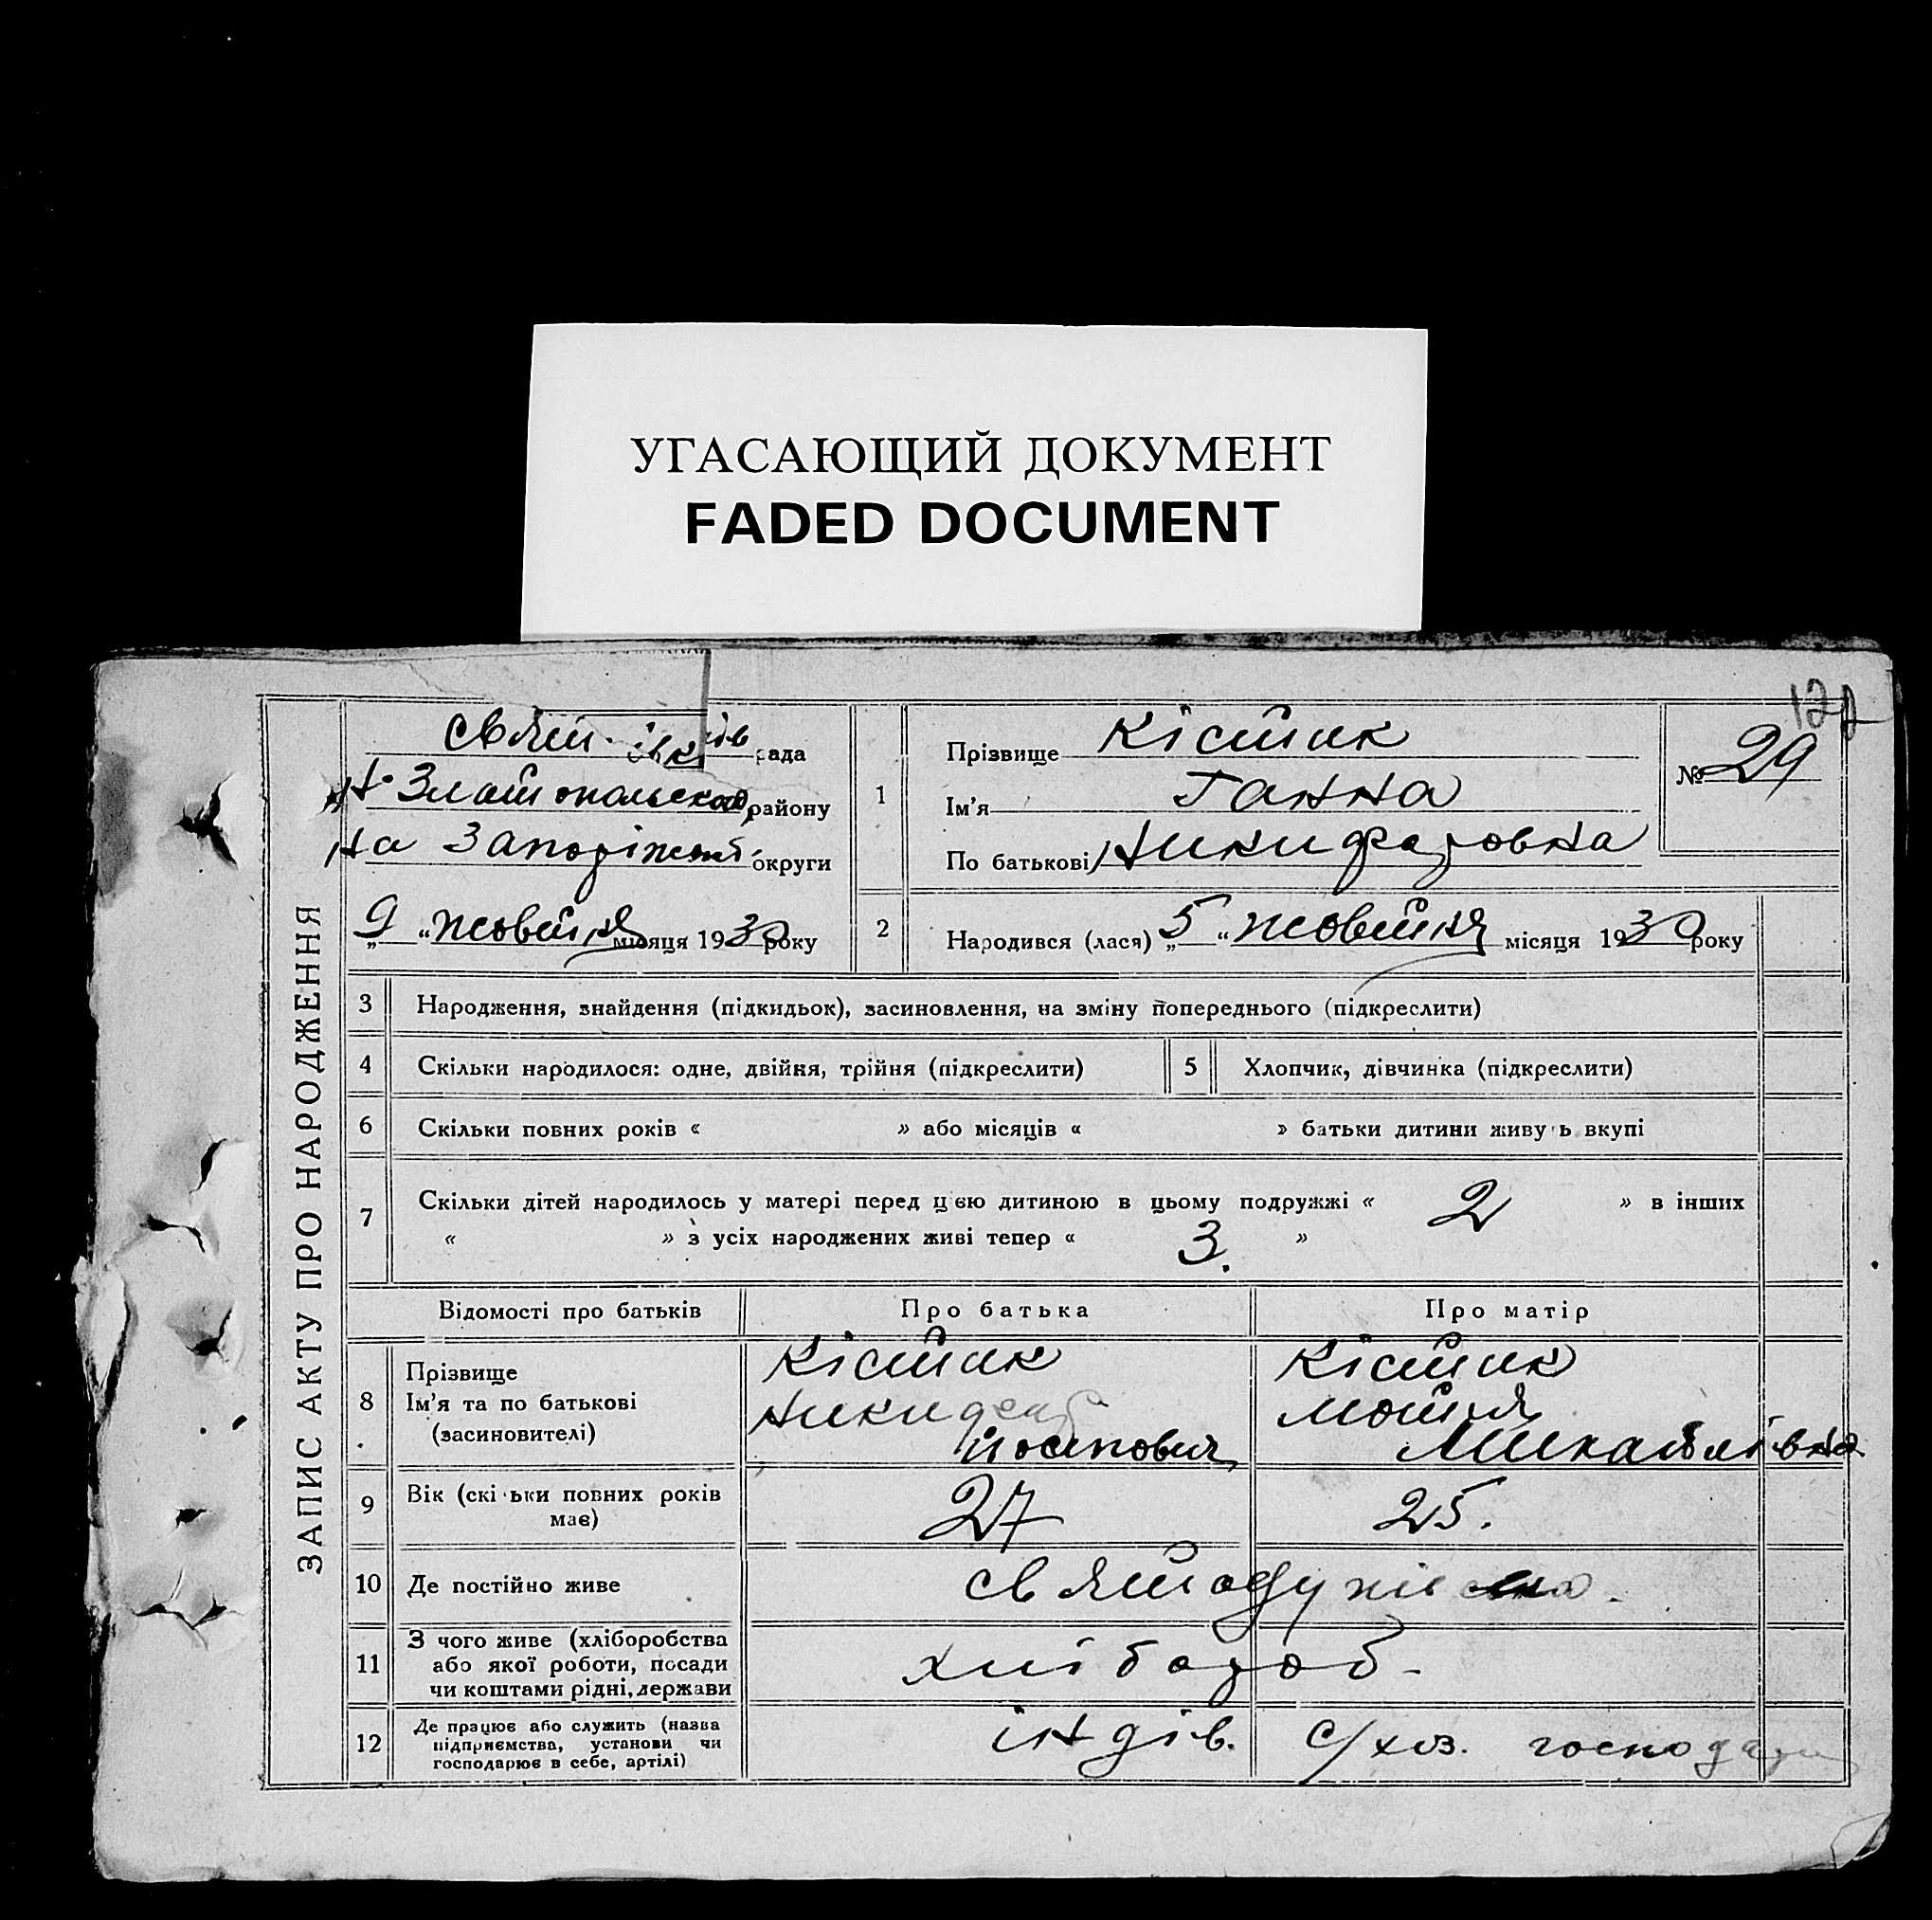 УГАСАЮЩИЙ ДОКУМЕНТ
FADED DOCUMENT
ЗАПИС АКТУ ПРО НАРОДЖЕННЯ
рада
району
округи
„9“ жовтня місяця 1930 року
1
Прізвище Кістик
Ім'я Ганна
По батькові Никифаровна
№ 29
2
Народився (лася) „5“ жовтня місяця 1930 року
3 Народження, знайдення (підкидьок), засиновлення, на зміну попереднього (підкреслити)
4 Скільки народилося: одне, двійня, трійня (підкреслити)
5 Хлопчик, дівчинка (підкреслити)
6 Скільки повних років « » або місяців « » батьки дитини живуть вкупі
7 Скільки дітей народилось у матері перед цією дитиною в цьому подружжі « 2 » в інших
« » з усіх народжених живі тепер « 3. »
Відомості про батьків Про батька Про матір
8 Прізвище Кістик Кістик
Ім'я та по батькові
(засиновителі) Йосипович Михайлівна
9 Вік (скільки повних років 27 25.
має)
10 Де постійно живе
11 З чого живе (хліборобства
або якої роботи, посади хлібороб-
чи коштами рідні, держави
12 Де працює або служить (назва індів. с/хоз.
підприємства, установи чи
господарює в себе, артілі)